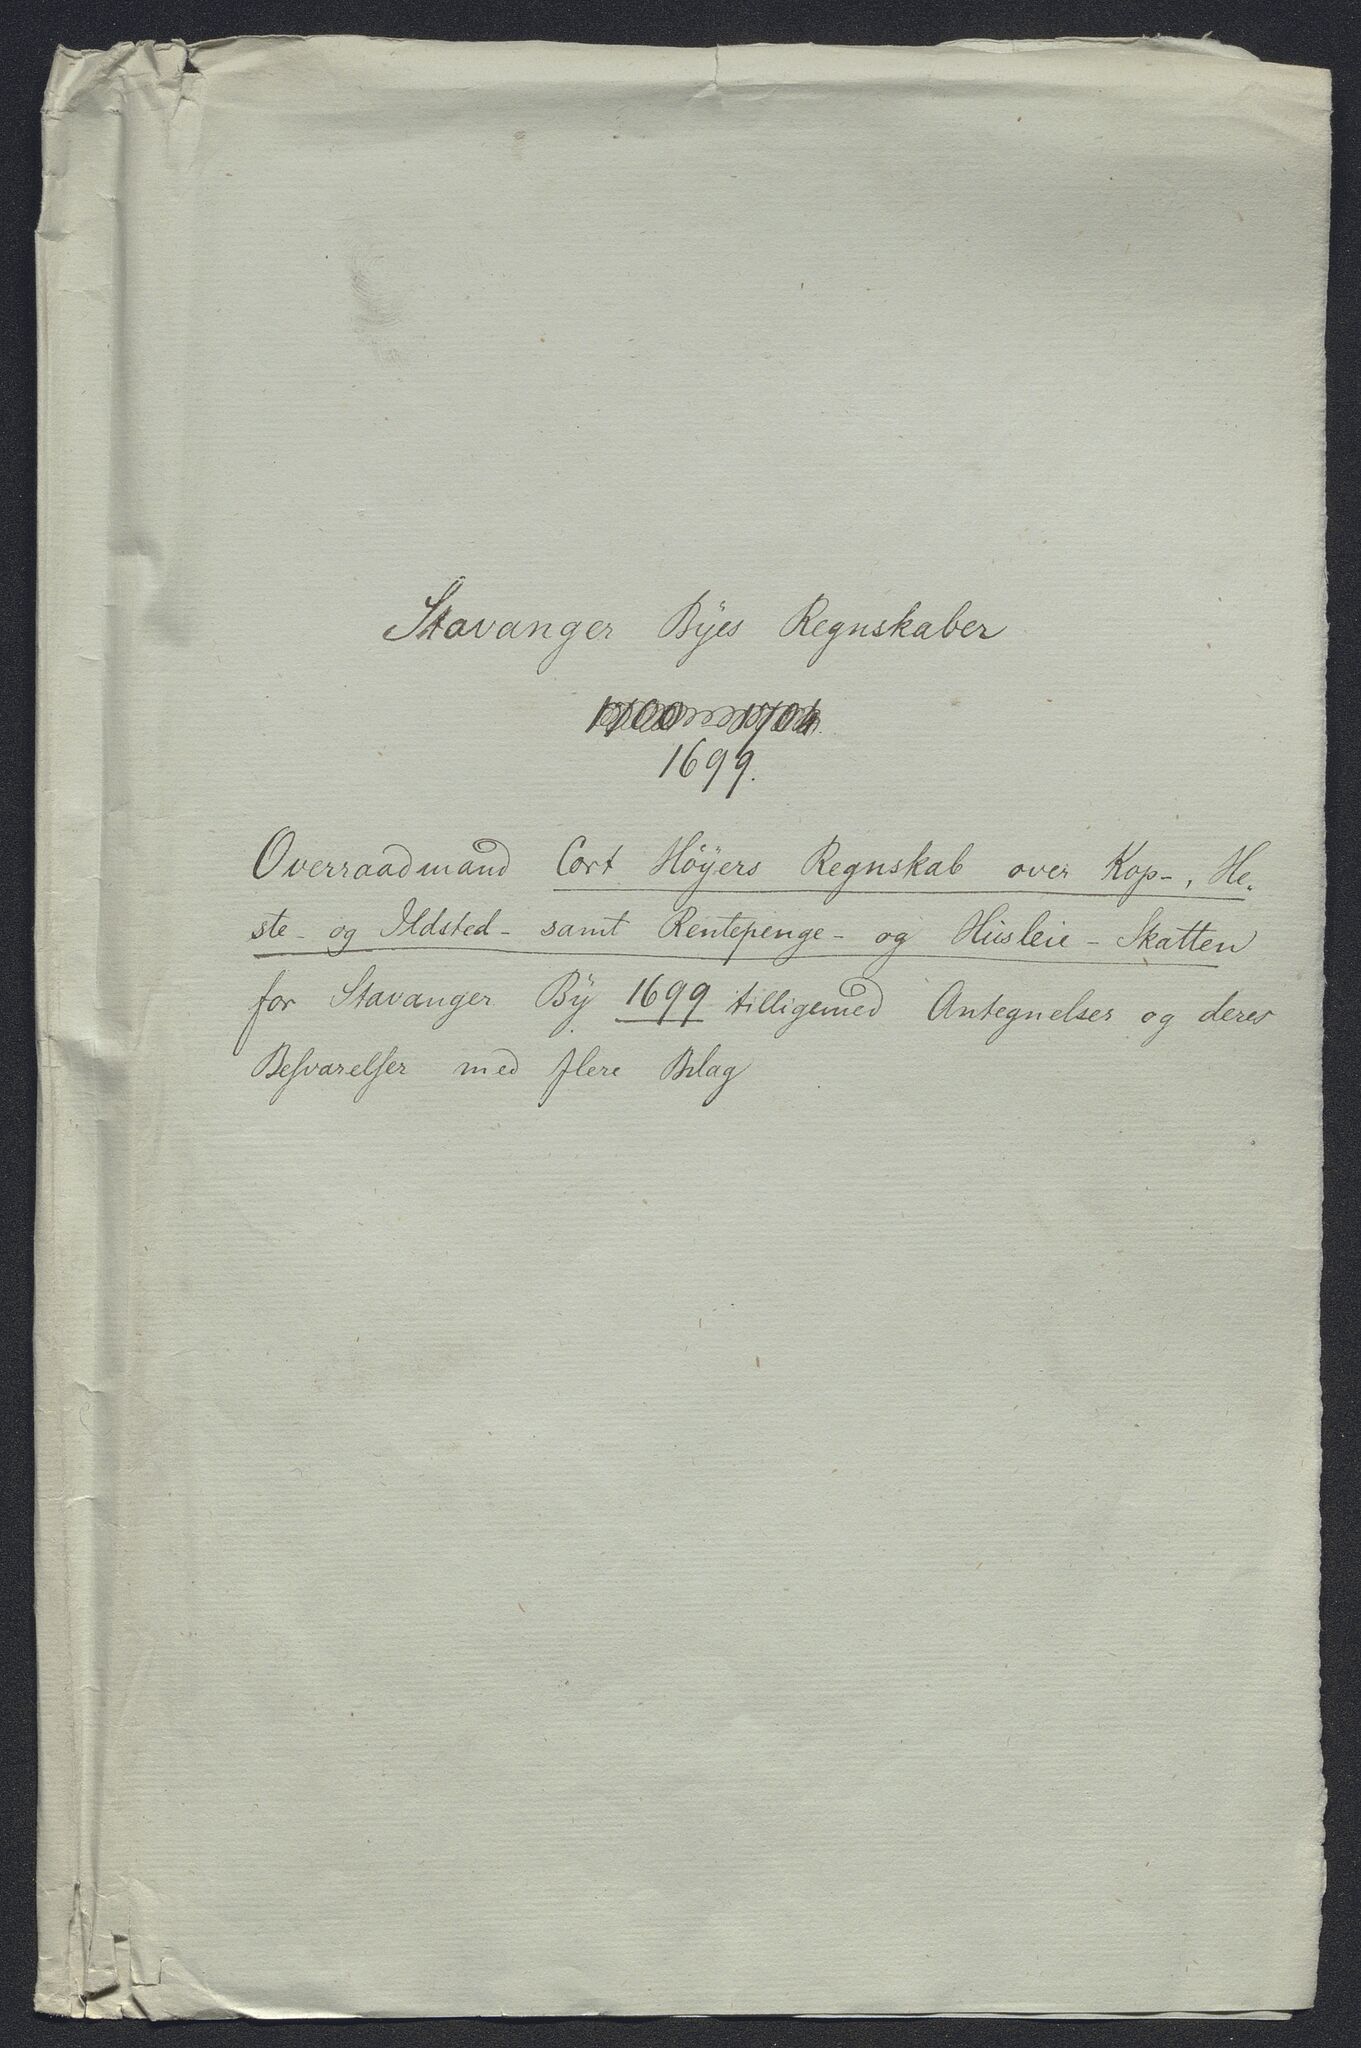 Stavanger Byes Regnskaber
1700 1704
1699.
Overraadmand Cort Höÿers Regnskab over Kop-, He-
ste- og Ildsted- samt Rentepenge- og Husleie-Skatten
for Stavanger Bÿ 1699 tilligemed Antegnelser og deres
Besvarelser med flere Bilag